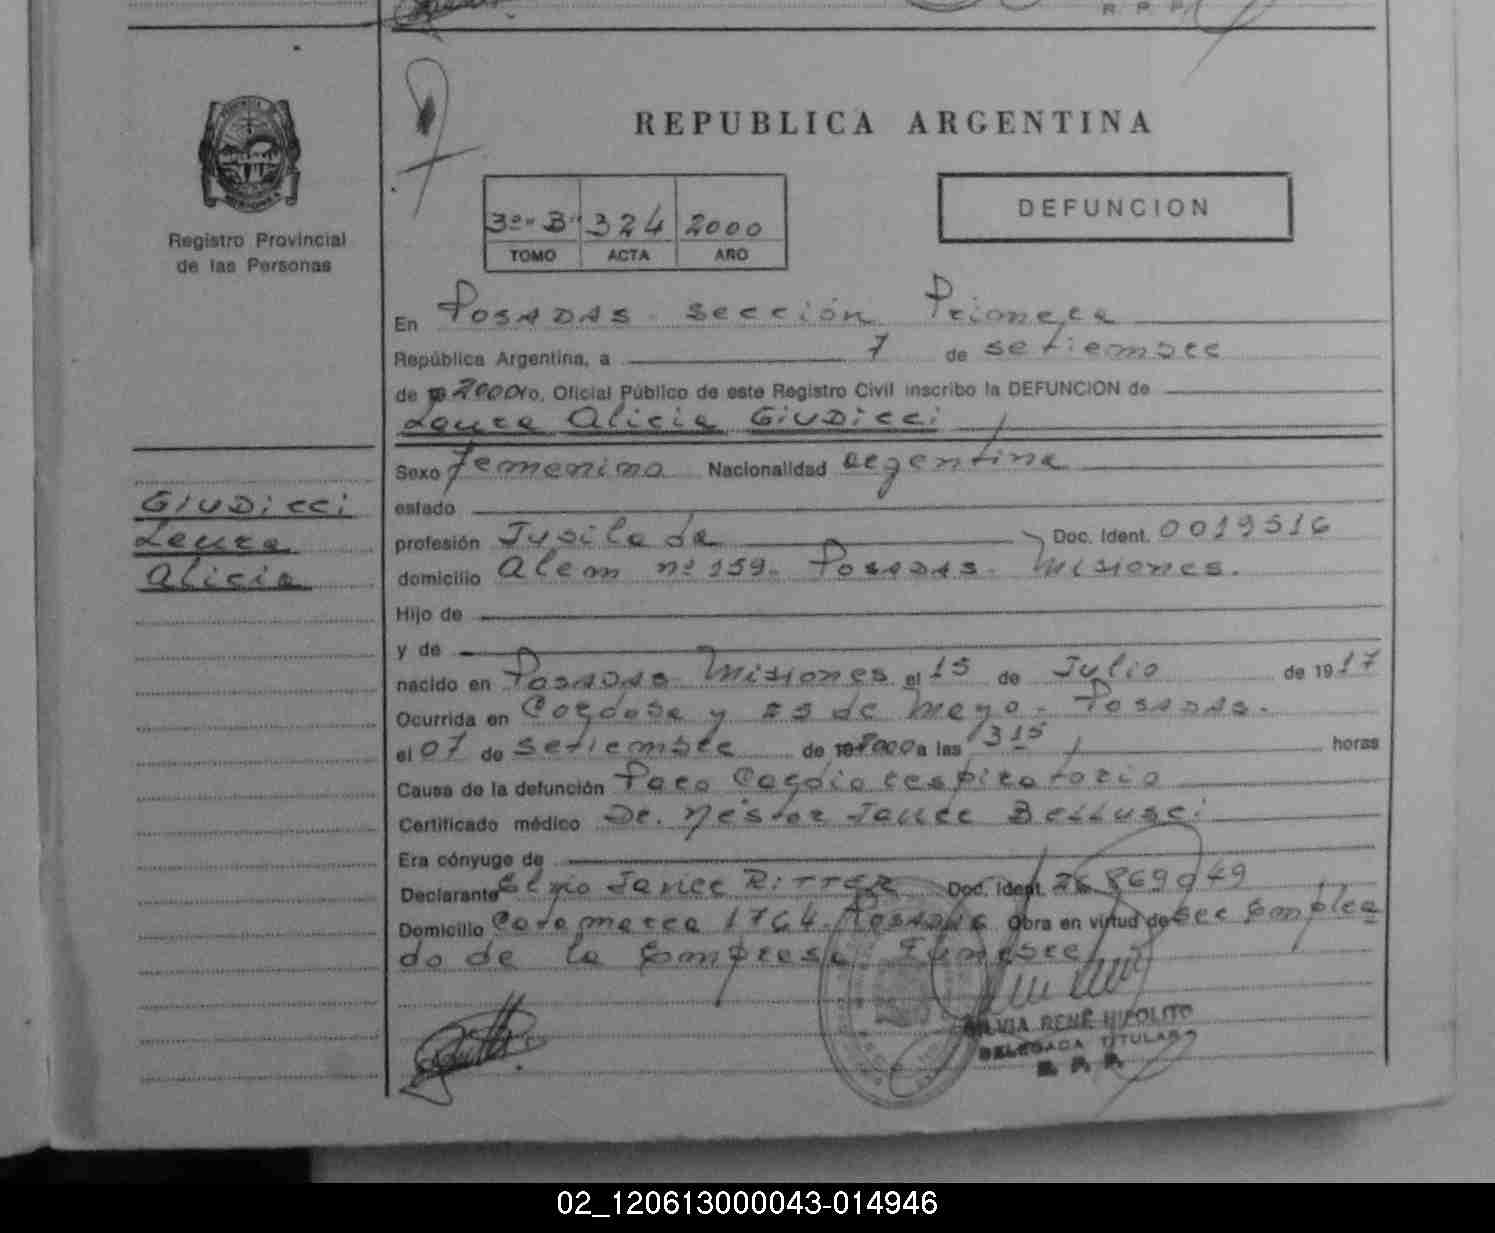 R. P. P.
REPUBLICA ARGENTINA
3º "B" 324 2000
TOMO ACTA AÑO
DEFUNCION
Registro Provincial
de las Personas
En Posadas sección Primera
República Argentina, a 7 de setiembre
de 2000 yo, Oficial Público de este Registro Civil inscribo la DEFUNCION de
Laura Alicia GiuDicci
Sexo femenino Nacionalidad argentina
GiuDicci
Laura
Alicia
estado
profesión Jubilada Doc. Ident. 0019516
domicilio Alem nº 159. Posadas. Misiones.
Hijo de
y de
nacido en Posadas Misiones el 15 de Julio de 1917
Ocurrida en Cordoba y 25 de Mayo - Posadas.
el 07 de setiembre de 2000 a las 1315 horas
Causa de la defunción Paro Cardiorespiratorio
Certificado médico Dr. Néstor Javier Bellusci
Era cónyuge de
Declarante Javier RiTTER Doc. Ident. 26869949
Domicilio Catamarca 1764. Posadas Obra en virtud de ser Emplea
do de la Empresa Funebre
SILVIA RENÉ HIPOLITO
DELEGADA TITULAR
R. P. P.
02_120613000043-014946